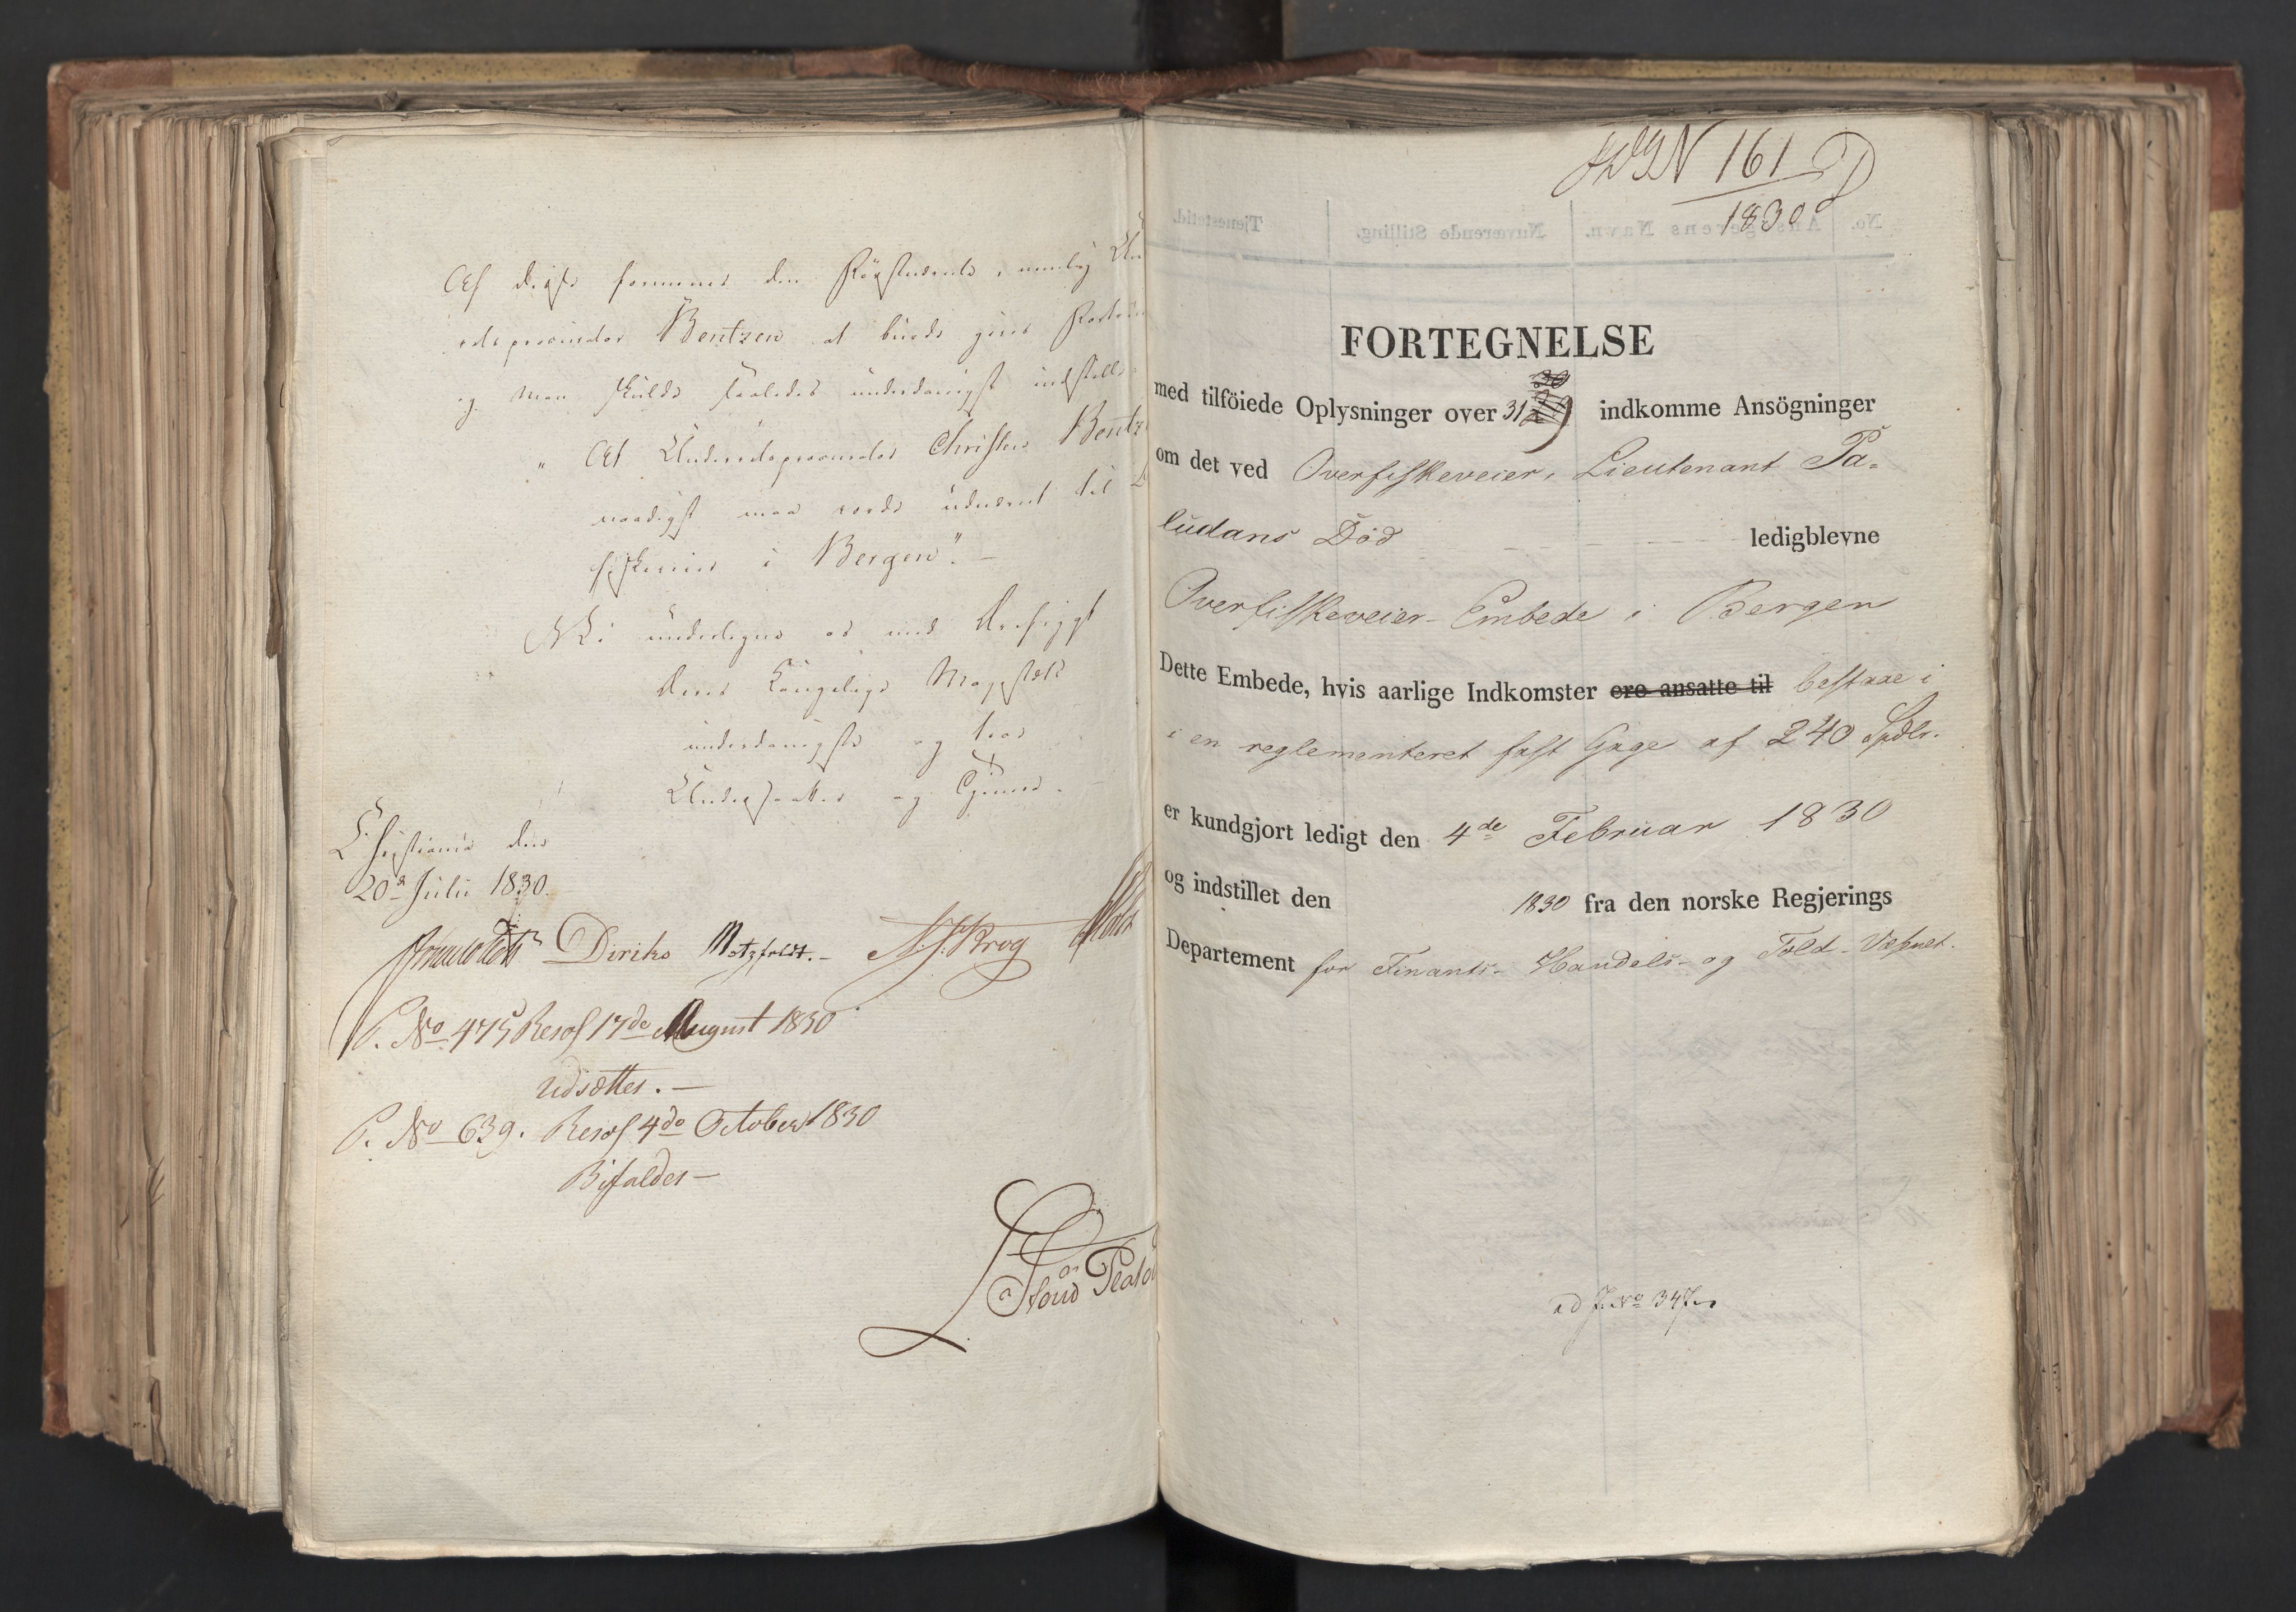 Af disse formenes den Förstnævnte, nemlig Un
Bentzen at burde gives Fortrin
og man skulde saaledes underdanigst indstille:
" At Christen Bentz
naadigst maa vorde udnævnt til
i Bergen". -
Vi undertegne os med dybeste
Deres Kongelige Majestæts
underdanigste og troe
Undersaatter og Tjenere.
Christiania den
20de Julii 1830.
Diriks Motzfeldt. - N. J. Krog
P. No 475 Resol 17de August 1830
udsættes. -
P. No 639. Resol 4de October 1830
Bifaldes -
No 161
1830
FORTEGNELSE
med tilföiede Oplysninger over 31 indkomme Ansögninger
om det ved Overfiskeveier, Lieutenant Pa-
ludans Död ledigblevne
Overfiskeveier-Embede i Bergen
Dette Embede, hvis aarlige Indkomster ere ansatte til bestaae i
i en reglementeret fast Gage af 240 Spdlr.
er kundgjort ledigt den 4de Februar 1830
og indstillet den 1830 fra den norske Regjerings
Departement for Finants- Handels- og Told-Væsnet.
ad J. No 347